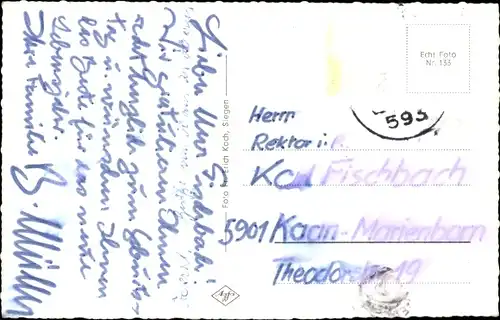 Lieber Herr Fischbach!
Wir gratulieren Ihnen
recht herzlich zum Geburts-
tag u. wünschen Ihnen
alles Gute für das neue
Lebensjahr.
Ihre Familie B. Müller
Foto Erich Koch, Siegen
Agfa
Echt Foto
Nr. 133
593
Herrn
Rektor i.R.
Karl Fischbach
5901 Kaan-Marienborn
Theodorstr. 19